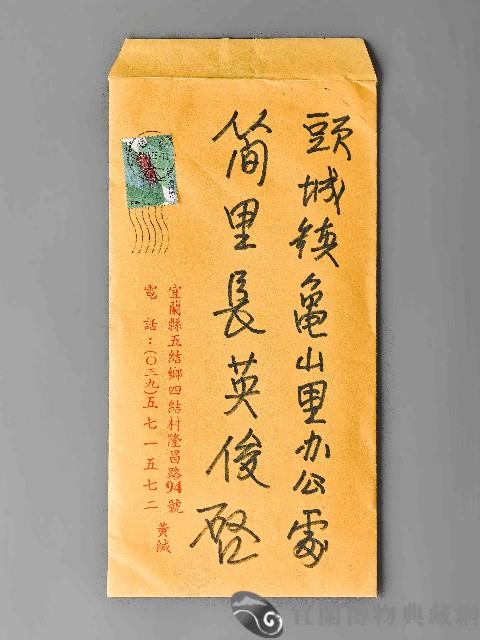 頭城鎮龜山里办公處
簡里長英俊啓
宜蘭縣五結鄉四結村隆昌路94號
電話：(〇三九)五七一五七二
黃緘
宜蘭博物典藏網